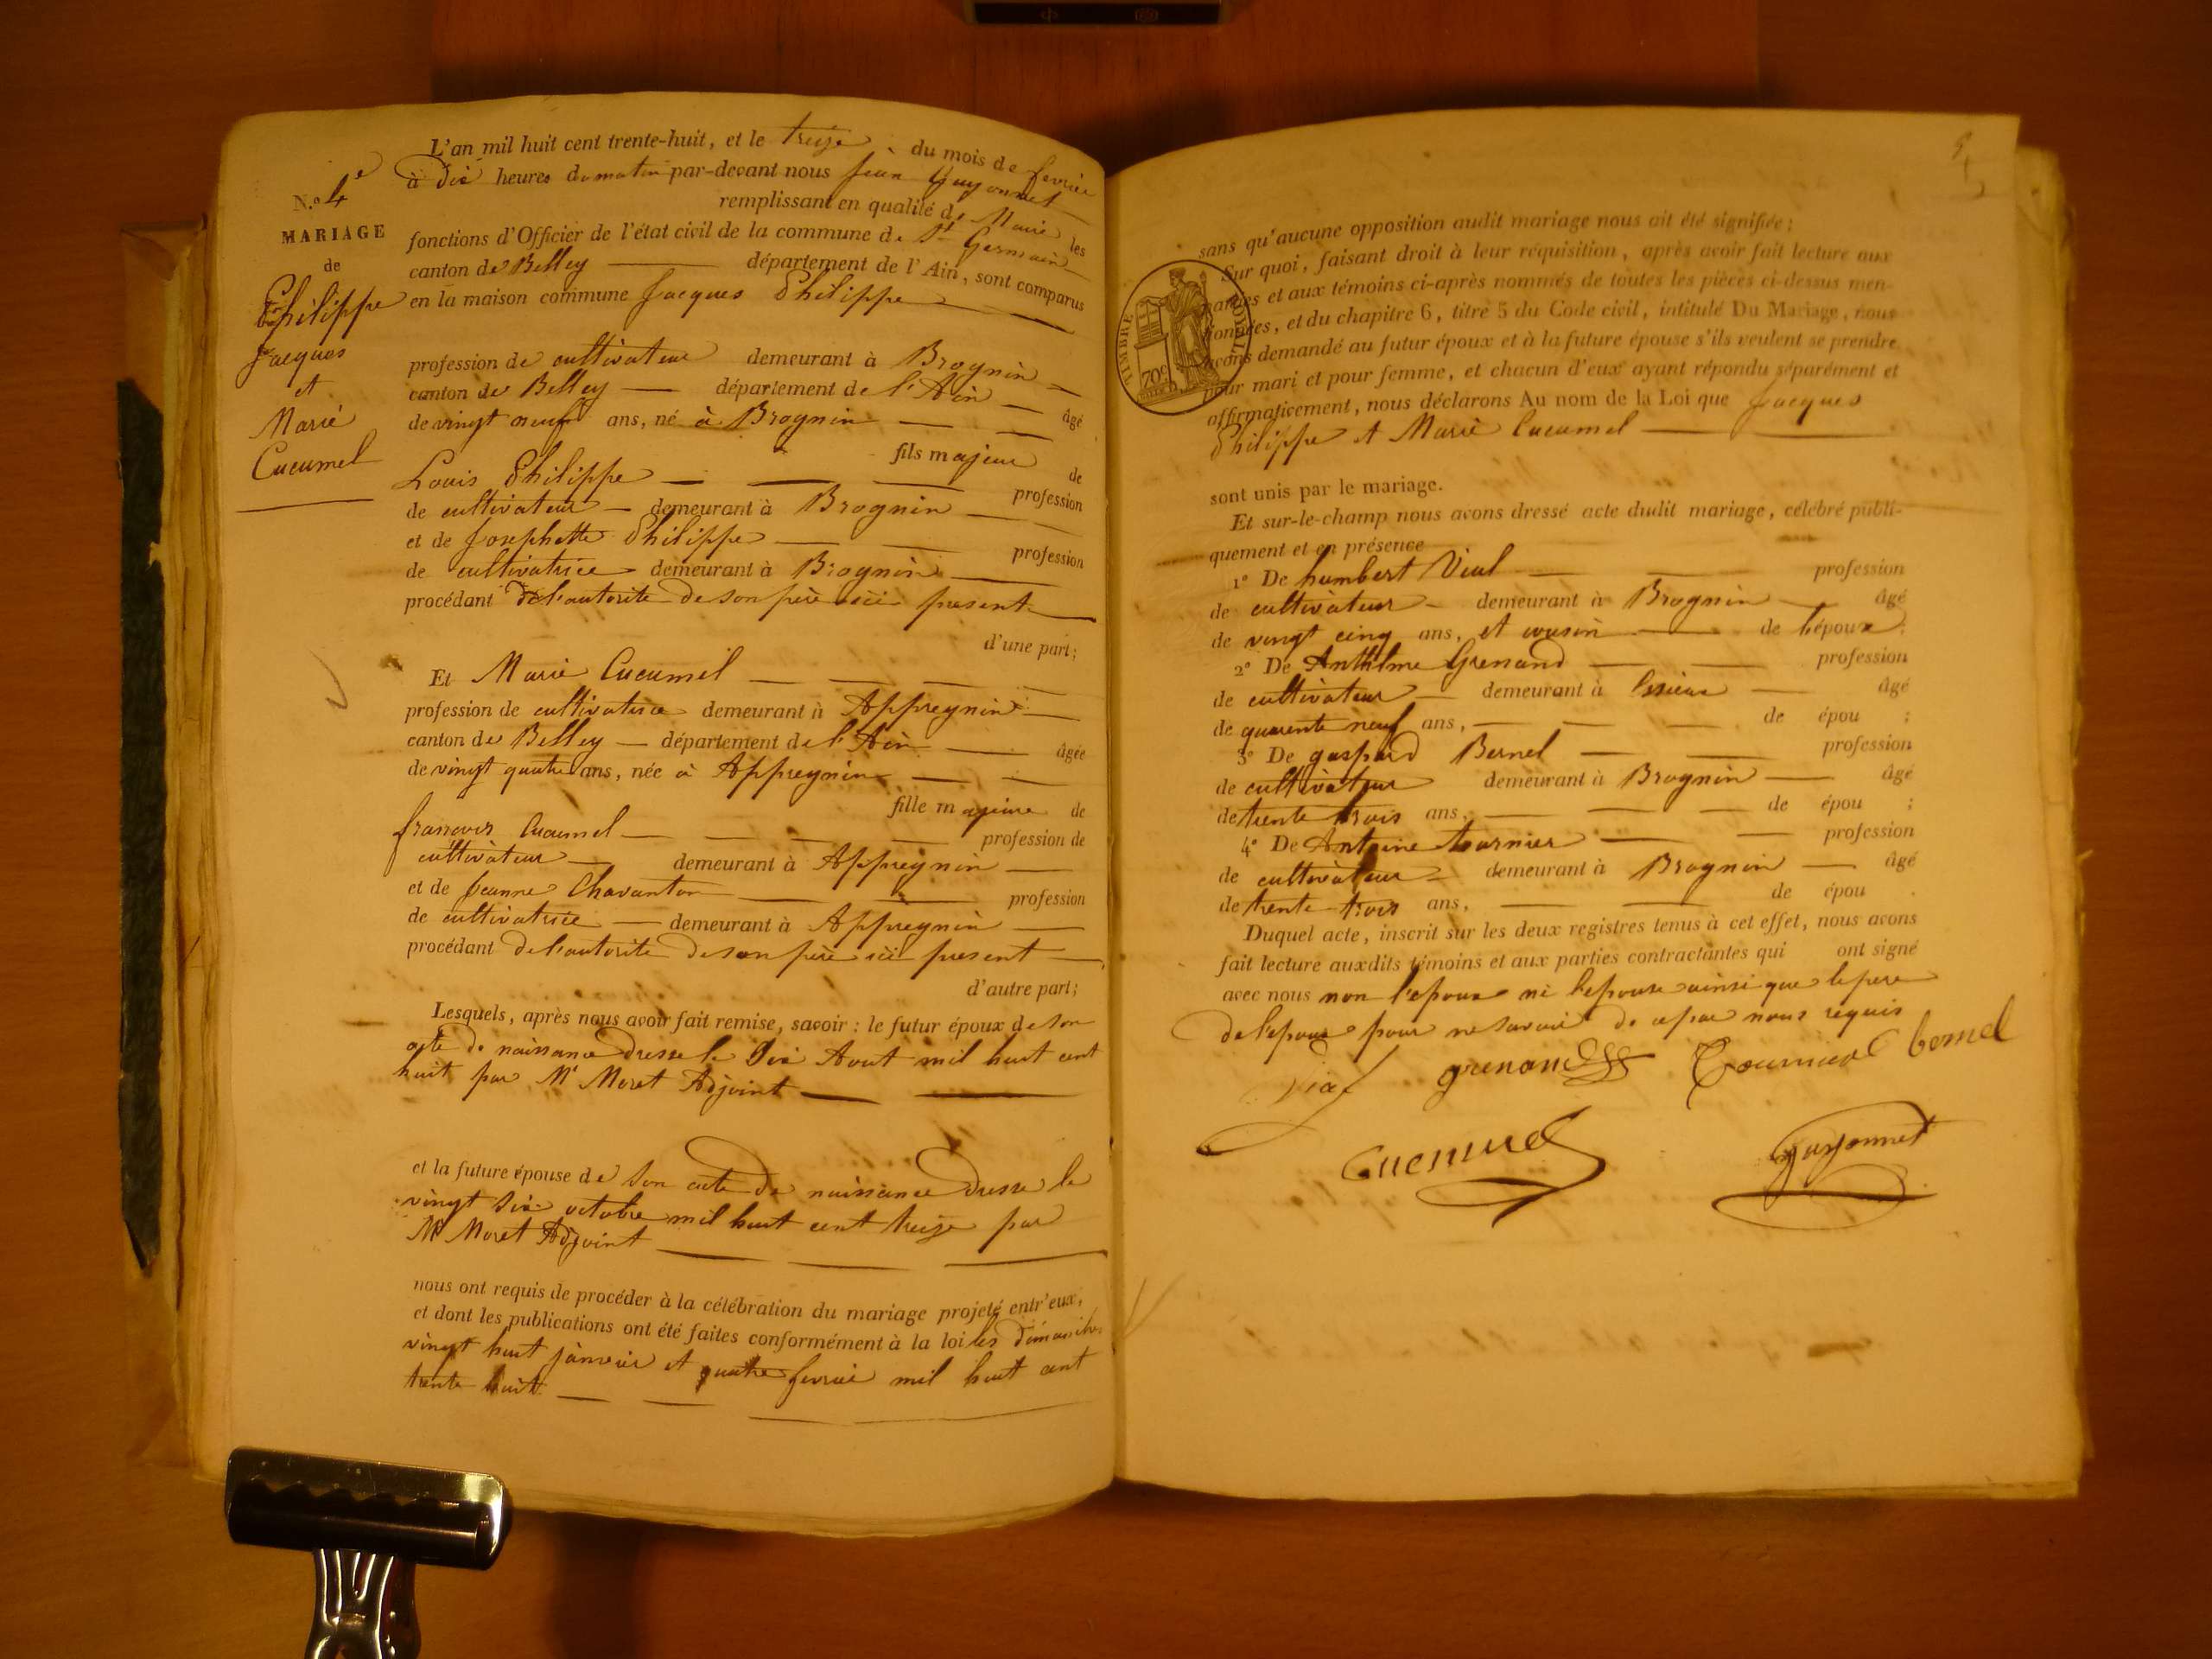 N.o 4e
MARIAGE
de
Philippe
Jacques
et
Marie
Cucumel
L'an mil huit cent trente-huit, et le treize du mois de fevrier
à dix heures du matin par-devant nous jean Guyonnet
remplissant en qualité de Maire les
fonctions d'Officier de l'état civil de la commune de St Germain
canton de Belley département de l'Ain, sont comparus
en la maison commune Jacques Philippe
profession de cultivateur demeurant à Brognin
canton de Belley département de l'Ain âgé
de vingt neuf ans, né à Brognin
fils majeur de
Louis Philippe profession
de cultivateur demeurant à Brognin
et de Josephette Philippe profession
de cultivatrice demeurant à Brognin
procédant de l'autorite de son père ici present
d'une part;
Et Marie Cucumel
profession de cultivatrice demeurant à Appregnin
canton de Belley département de l'Ain âgée
de vingt quatre ans, née à Appregnin
fille majeure de
francois Cucumel profession de
cultivateur demeurant à Appregnin
et de Jeanne Chavanton profession
de cultivatrice demeurant à Appregnin
procédant de l'autorite de son père ici present
d'autre part;
Lesquels, après nous avoir fait remise, savoir: le futur époux de son
acte de naissance dresse le dix Aout mil huit cent
huit par Mr Moret Adjoint
et la future épouse de son acte de naissance dresse le
vingt six octobre mil huit cent treize par
Mr Moret Adjoint
nous ont requis de procéder à la célébration du mariage projeté entr'eux,
et dont les publications ont été faites conformément à la loi les dimanches
vingt huit janvier et quatre fevrier mil huit cent
trente huit
TIMBRE ROYAL
70c
sans qu'aucune opposition audit mariage nous ait été signifiée;
Sur quoi, faisant droit à leur réquisition, après avoir fait lecture aux
parties et aux témoins ci-après nommés de toutes les pièces ci-dessus men-
tionnées, et du chapitre 6, titre 5 du Code civil, intitulé Du Mariage, nous
avons demandé au futur époux et à la future épouse s'ils veulent se prendre
pour mari et pour femme, et chacun d'eux ayant répondu séparément et
affirmativement, nous déclarons Au nom de la Loi que Jacques
Philippe et Marie Cucumel
sont unis par le mariage.
Et sur-le-champ nous avons dressé acte dudit mariage, célébré publi-
quement et en présence
1° De humbert Vial profession
de cultivateur demeurant à Brognin âgé
de vingt cinq ans, et cousin de l'époux;
2° De Anthelme Grenand profession
de cultivateur demeurant à âgé
de quarente neuf ans, de épou ;
3° De gaspard Bernel profession
de cultivateur demeurant à Brognin âgé
de trente trois ans, de épou ;
4° De Antoine tournier profession
de cultivateur demeurant à Brognin âgé
de trente trois ans, de épou .
Duquel acte, inscrit sur les deux registres tenus à cet effet, nous avons
fait lecture auxdits témoins et aux parties contractantes qui ont signé
avec nous non l'epoux ni l'epouse ainsi que le pere
de l'epoux pour ne savoir de ce par nous requis
Vial grenand Tournier bernel
Cucumel Guyonnet